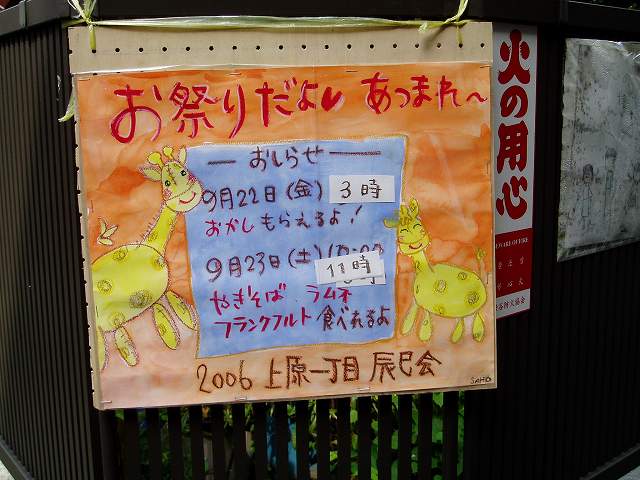 お祭りだよ あつまれ〜
おしらせ
9月22日(金) 3時
おかしもらえるよ!
9月23日(土) 11時
やきそば ラムネ
フランクフルト 食べれるよ
2006 上原一丁目 辰巳会
SAHO
火の用心